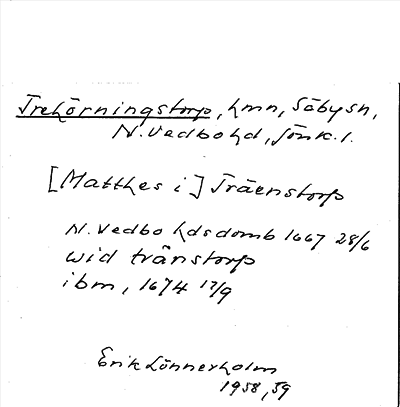 Trehörningstorp, hmn, Säby sn,
N. Vedbo hd, Jönk. l.
[Matthes i] Träenstorp
N. Vedbo hds domb 1667 28/6
wid trånstorp
ibm, 1674 17/9
Erik Lönnerholm
1958, 59